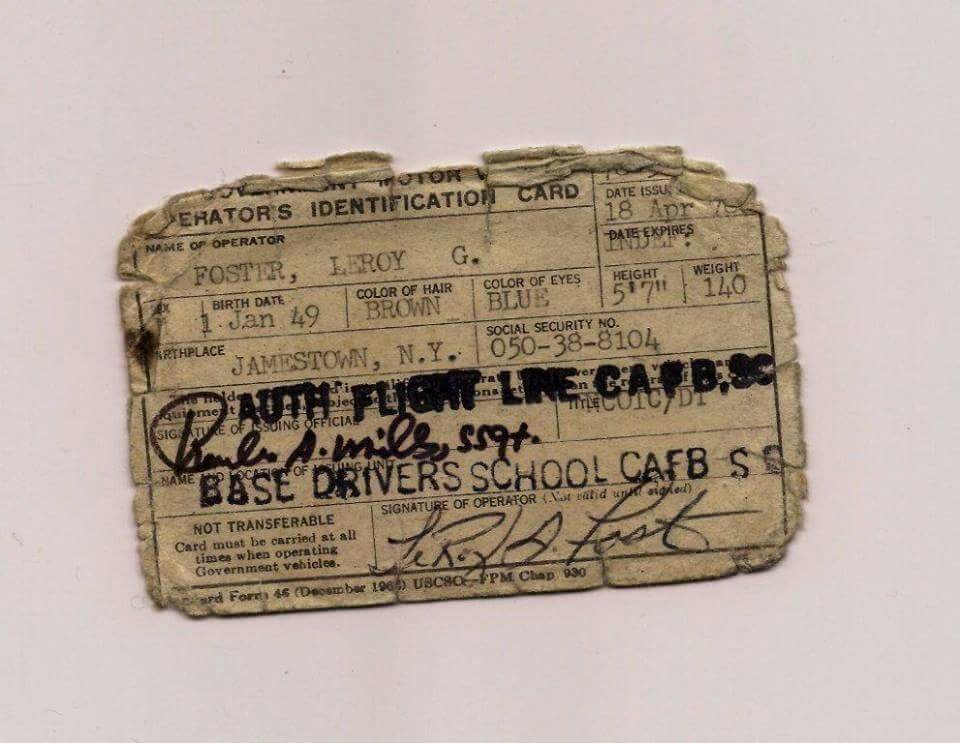 MOTOR
ERATOR'S IDENTIFICATION CARD
DATE ISSU
18 Apr
DATE EXPIRES
INDEF.
NAME OF OPERATOR
FOSTER, LEROY G.
BIRTH DATE
1 Jan 49
COLOR OF HAIR
BROWN
COLOR OF EYES
BLUE
HEIGHT
5'7"
WEIGHT
140
RTHPLACE
JAMESTOWN, N.Y.
SOCIAL SECURITY NO.
050-38-8104
AUTH FLIGHT LINE CAFB,SC
SIGNATURE OF ISSUING OFFICIAL
TITLE
COIC/DT
SSgt.
NAME AND LOCATION OF ISSUING UNIT
BASE DRIVERS SCHOOL CAFB S
NOT TRANSFERABLE
Card must be carried at all
times when operating
Government vehicles.
SIGNATURE OF OPERATOR (Not valid until signed)
LeRoy G. Foster
ard Form 46 (December 196 ) USCSC—FPM Chap 930